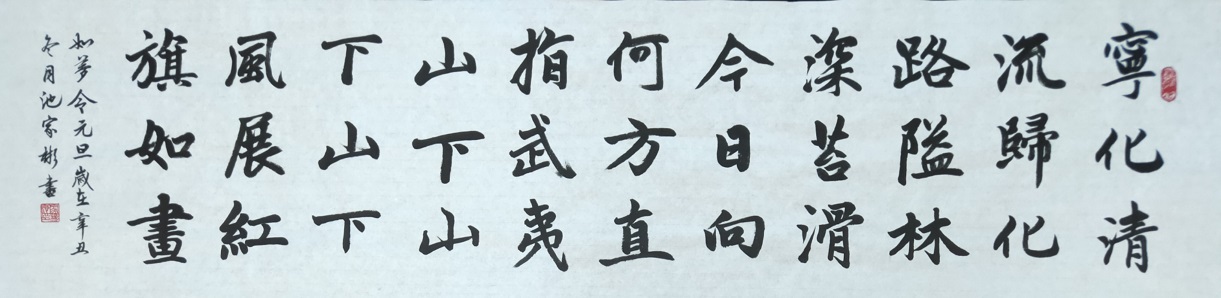 寧化清
流歸化
路隘林
深苔滑
今日向
何方直
指武夷
山下山
下山下
風展紅
旗如畫
如夢令元旦歲在辛丑
冬月池家彬書